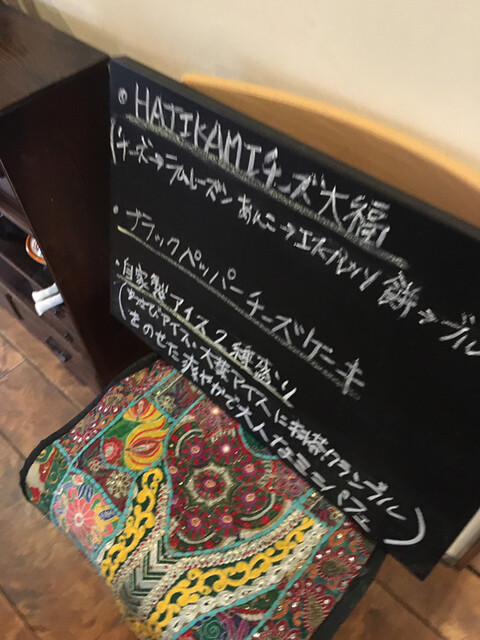 ・HAJIKAMIチーズ大福
(チーズ→ラムレーズン あんこ→エスプレッソ 餅→ブル
・ブラックペッパーチーズケーキ
・自家製アイス2種盛り
(わさびアイス・大葉アイスに抹茶クランブル
をのせたさわやかで大人なミニパフェ)